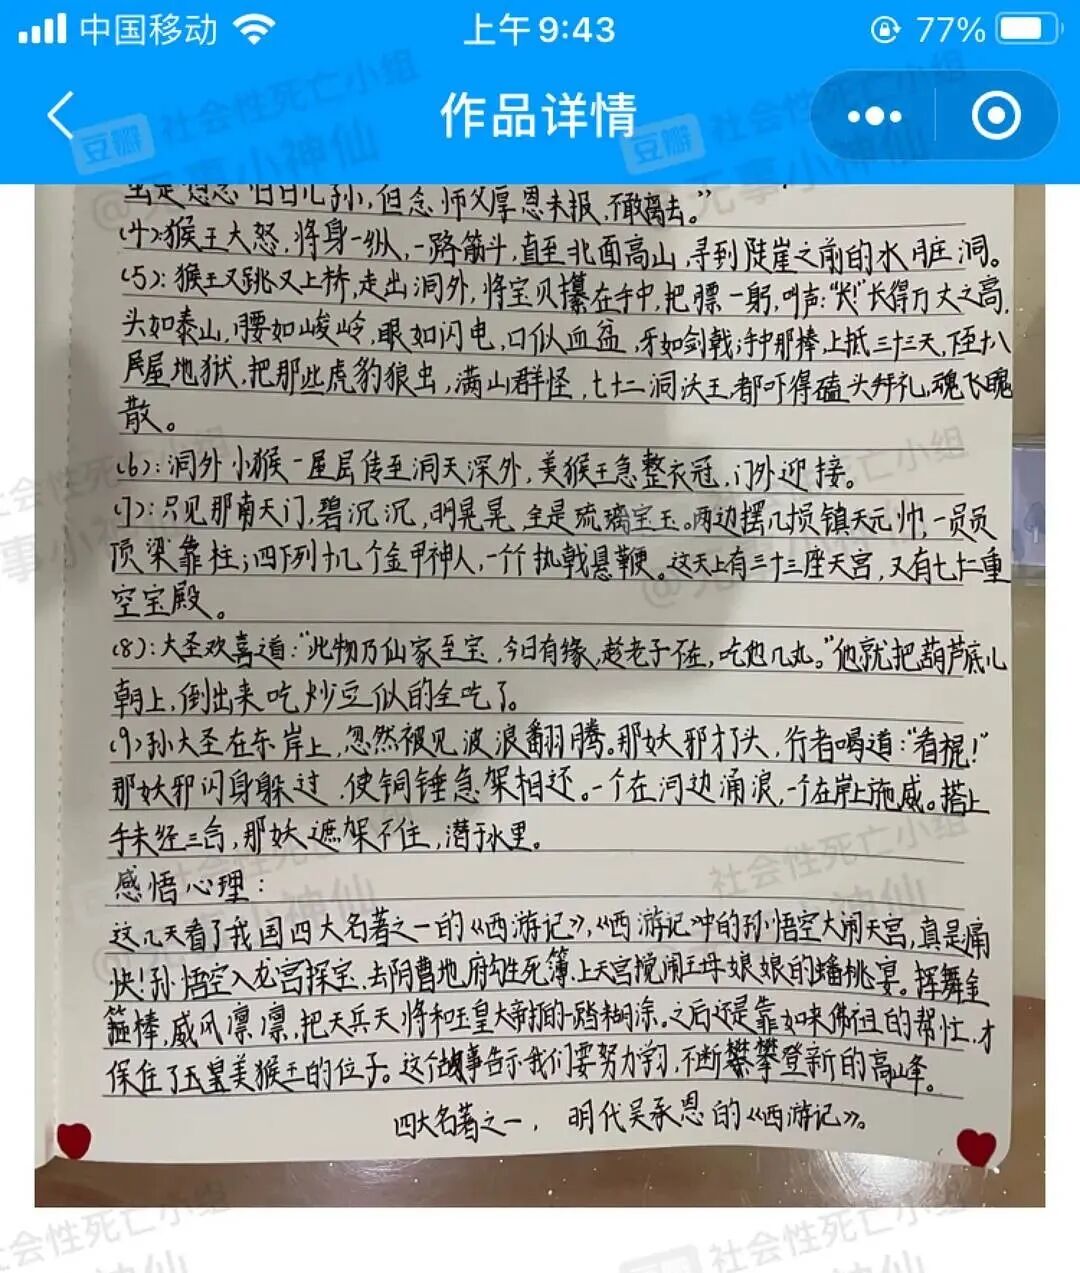 中国移动
上午9:43
77%
作品详情
豆瓣
社会性死亡小组
@无事小神仙
豆瓣
社会性死亡小组
@无事小神仙
虽是想念旧日儿孙,但念师父厚恩未报,不敢离去。”
(4):猴王大怒,将身一纵,一路筋斗,直至北面高山,寻到陡崖之前的水脏洞。
(5):猴王又跳又上桥,走出洞外,将宝贝攥在手中,把腰一躬,叫声:“长!”长得万丈之高,
头如泰山,腰如峻岭,眼如闪电,口似血盆,牙如剑戟;手中那棒,上抵三十三天,下至十八
层地狱,把那些虎豹狼虫,满山群怪,七十二洞沃王,都吓得磕头拜礼,魂飞魄
散。
(6):洞外小猴一层层传至洞天深外,美猴王急整衣冠,门外迎接。
(7):只见那南天门,碧沉沉,明晃晃,全是琉璃宝玉。两边摆几损镇天元帅,一员员
顶梁靠柱;四下列十几个金甲神人,一个个执戟悬鞭。这天上有三十三座天宫,又有七十二重
空宝殿。
(8):大圣欢喜道:“此物乃仙家至宝,今日有缘,趁老子不在,吃他几丸。”他就把葫芦底儿
朝上,倒出来吃炒豆似的全吃了。
(9)孙大圣在东岸上,忽然被见波浪翻腾。那妖邪才了头,行者喝道:“看棍!”
那妖邪闪身躲过,使铜锤急架相还。一个在河边涌浪,一个在岸上施威。搭上
手未经三合,那妖遮架不住,潜于水里。
感悟心理:
这几天看了我国四大名著之一的《西游记》,《西游记》中的孙悟空大闹天宫,真是痛
快!孙悟空入龙宫探宝,去阴曹地府勾生死簿,上天宫搅闹王母娘娘的蟠桃宴。挥舞金
箍棒,威风凛凛,把天兵天将和玉皇大帝打的一踏糊涂。之后还是靠如来佛祖的帮忙,才
保住了玉皇美猴王的位子。这个故事告示我们要努力学习,不断攀攀登新的高峰。
四大名著之一,明代吴承恩的《西游记》。
社会性死亡小组
社会性死亡小组